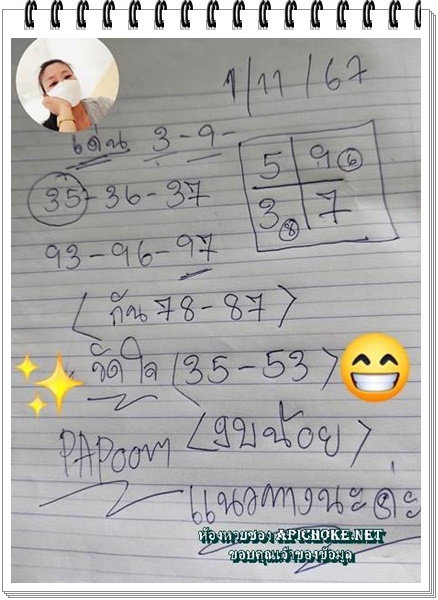 1/11/67
เด่น 3-9-
35-36-37
5 9 6
3 8 7
93-96-97
(กัน 78-87)
จัดใจ (35-53)
PAPOOM (งบน้อย)
แนวทางนะคะ
ห้องหวยซอง APICHOKE.NET
ขอบคุณเจ้าของข้อมูล